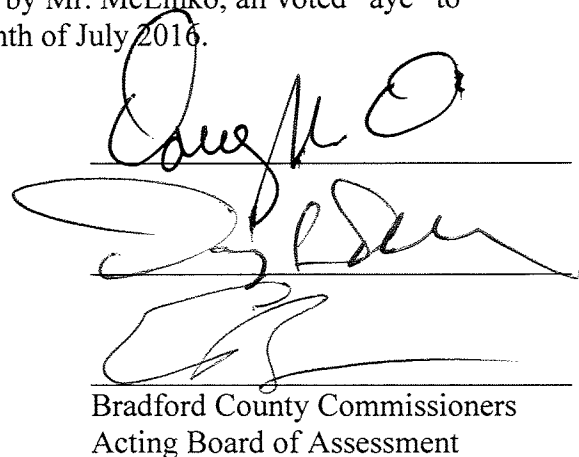 by Mr. McLinko, all voted "aye" to
nth of July 2016.
Doug
Bradford County Commissioners
Acting Board of Assessment